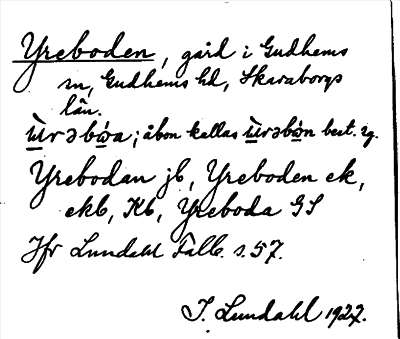 Yreboden, gård i Gudhems
sn, Gudhems hd, Skaraborgs
län.
ùrəbὼa; åbon kallas ùrəbὼn best. sg.
Yrebodan jb, Yreboden ek,
ekb, Kb, Yreboda GS
Jfr Lundahl Falb. s. 57.
I. Lundahl 1927.